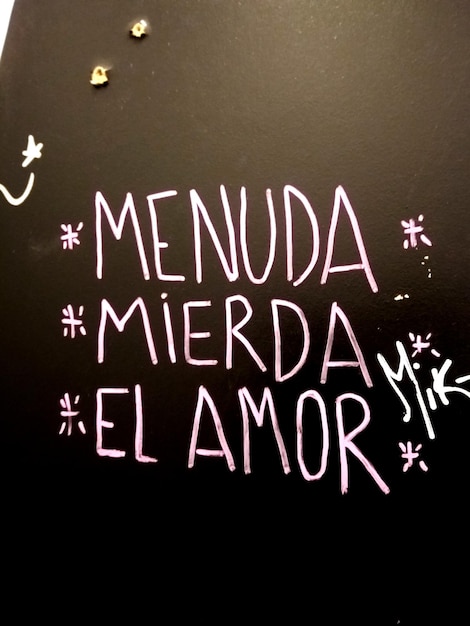 MENUDA
MiERDA
EL AMOR
Mik